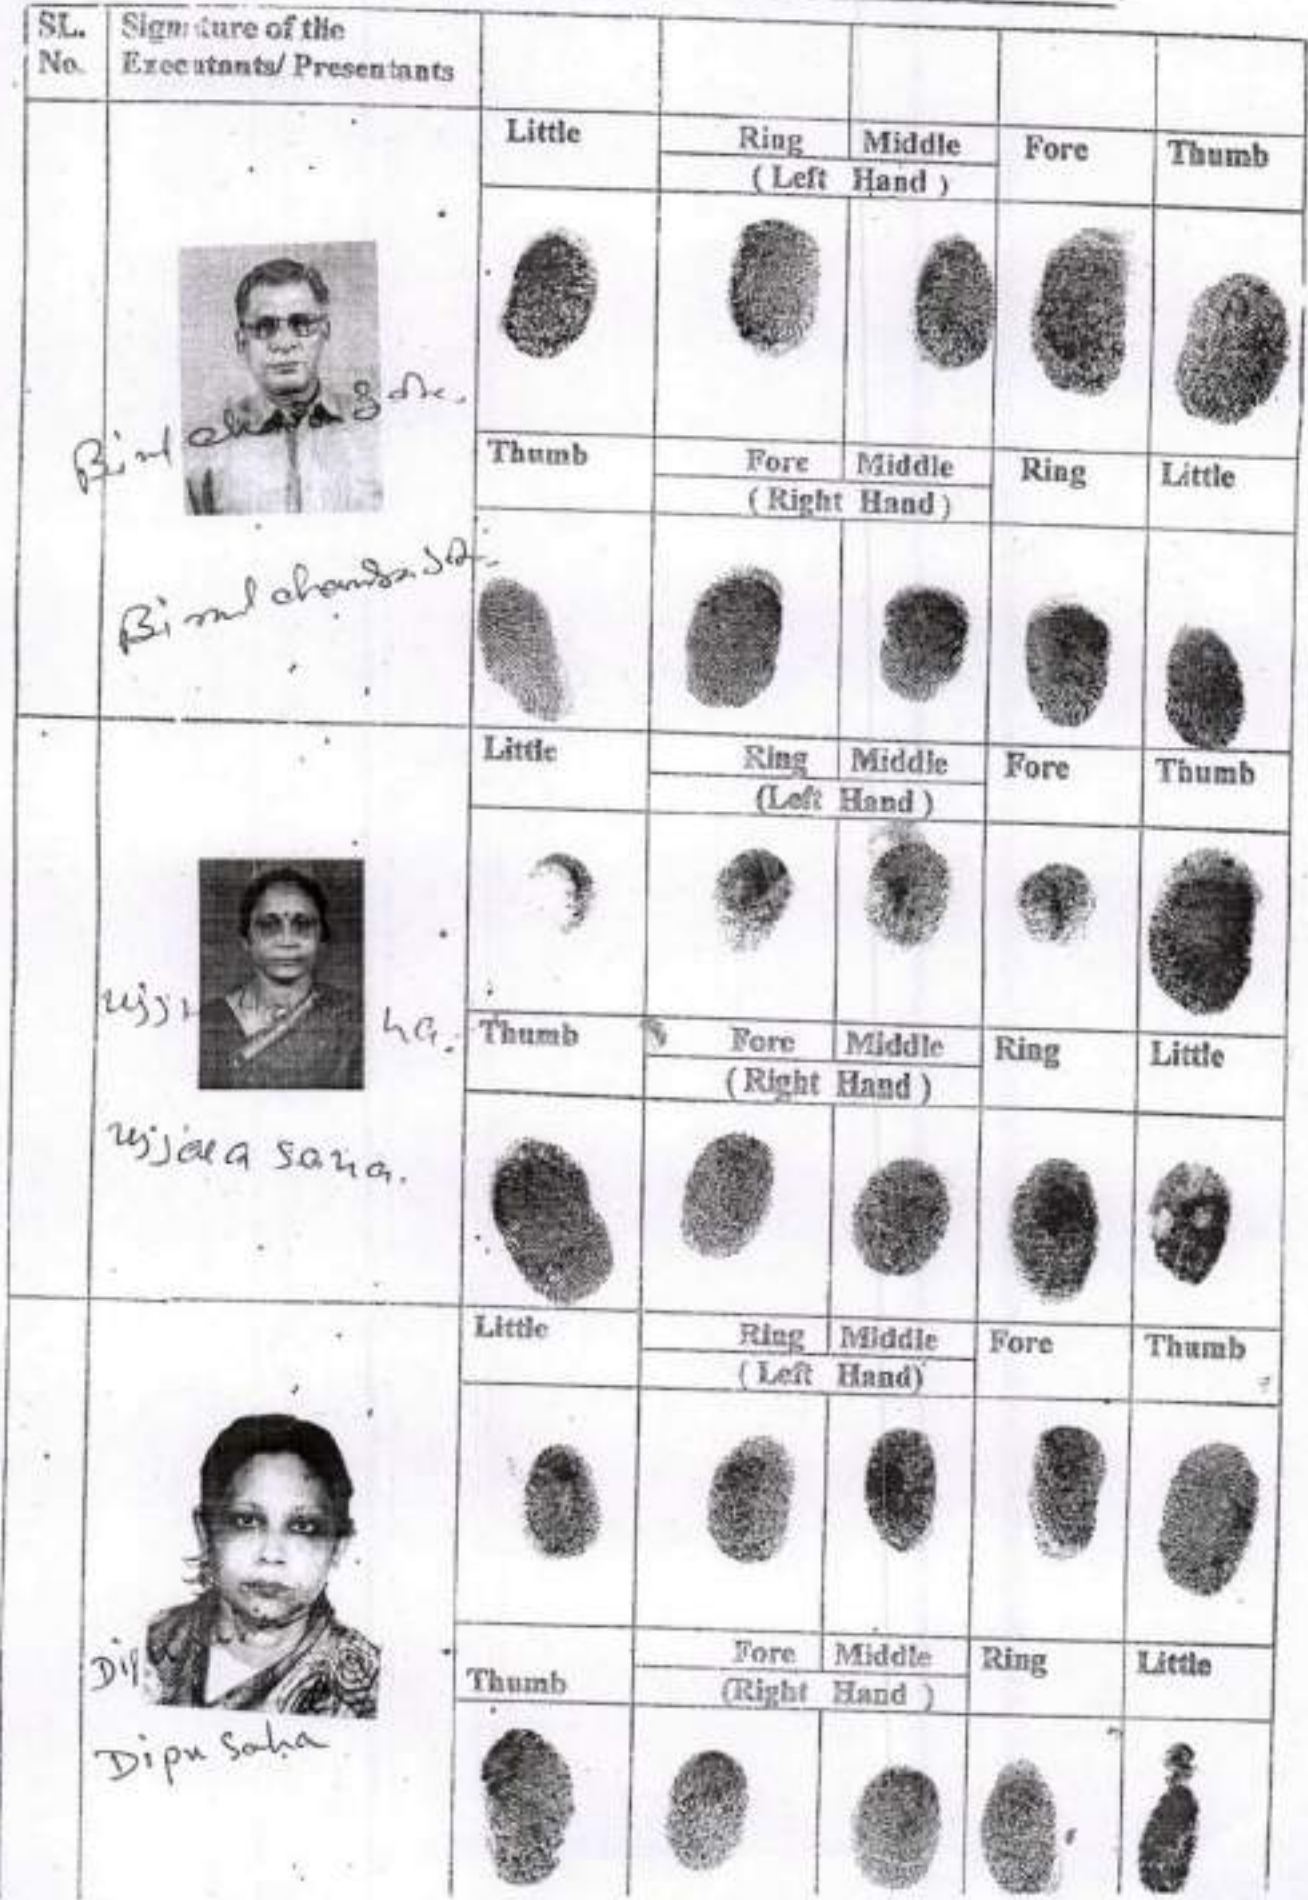 SL. No.
Signature of the Executants/ Presentants
Little Ring Middle Fore Thumb
( Left Hand )
Thumb Fore Middle Ring Little
( Right Hand )
Bimal chandra
Little Ring Middle Fore Thumb
(Left Hand )
ha.
Thumb Fore Middle Ring Little
( Right Hand )
Ujjala Saha.
Little Ring Middle Fore Thumb
( Left Hand)
Dip
Thumb Fore Middle Ring Little
(Right Hand )
Dipu Saha